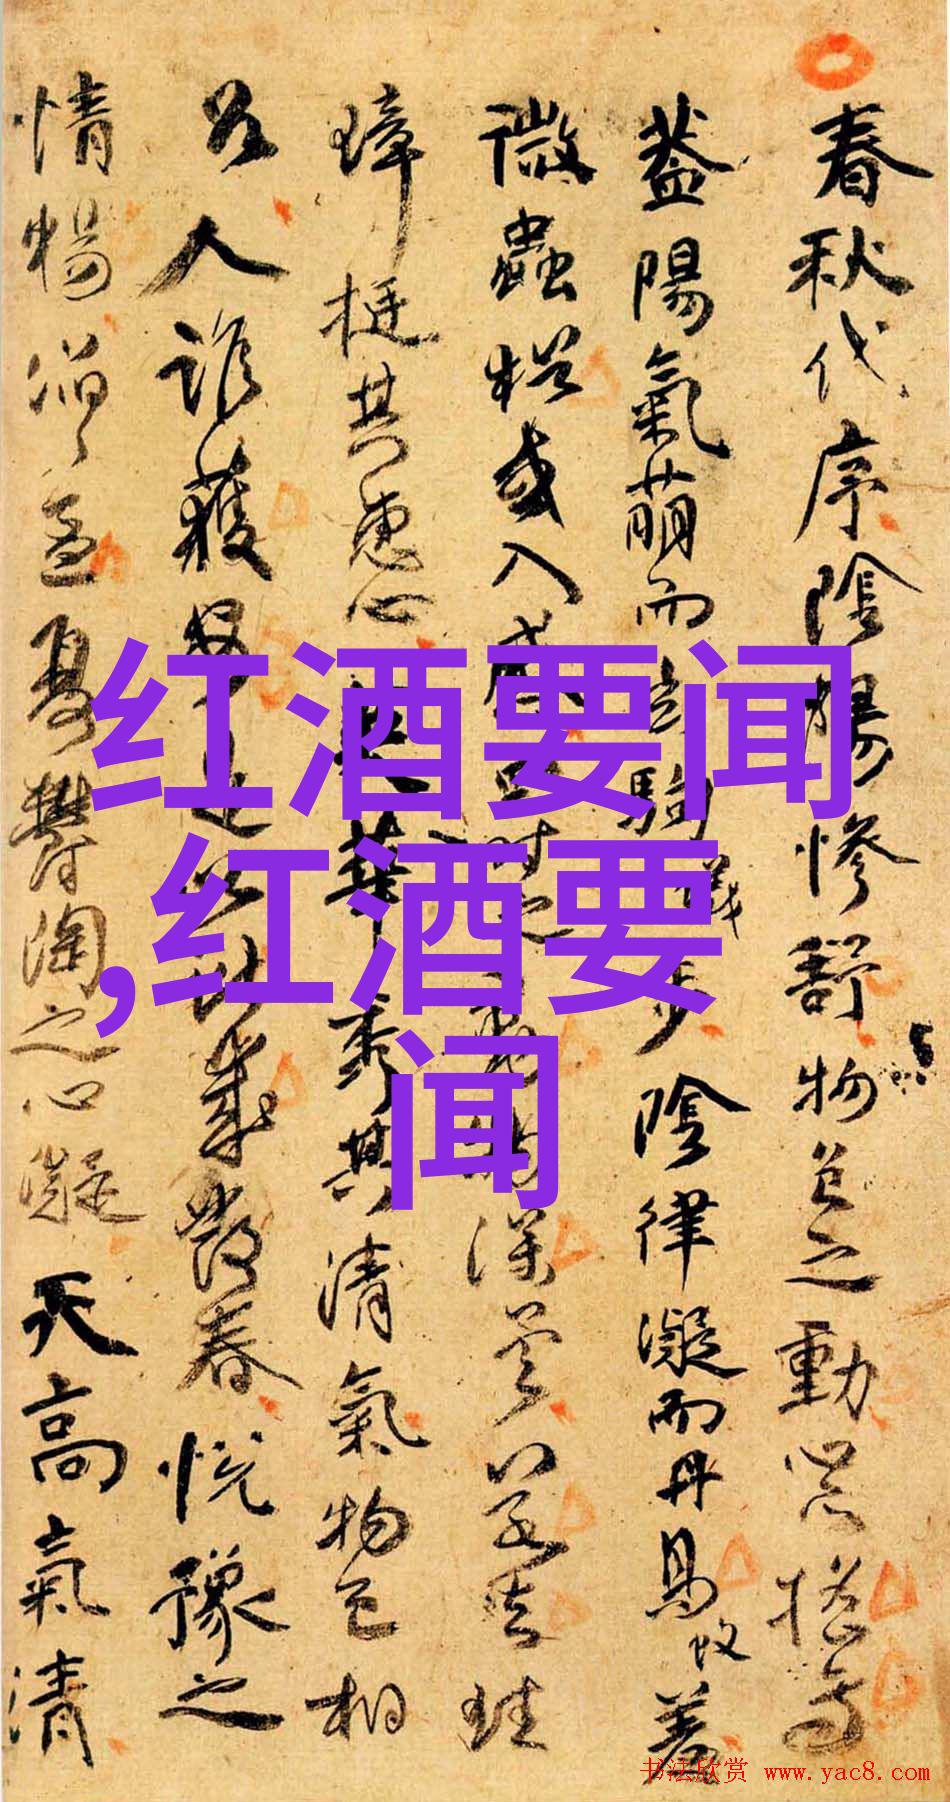 春秋代序陰陽慘舒物色之動心亦搖焉
蓋陽氣萌而玄駒步陰律凝而丹鳥羞
微蟲猶或入感四時之動物深矣若夫珪
璋挺其惠心英華秀其清氣物色相
召人誰獲安是以獻歲發春悅豫之
情暢滔滔孟夏鬱陶之心凝天高氣清
红酒要闻
,红酒要
闻
书法欣赏 www.yac8.com